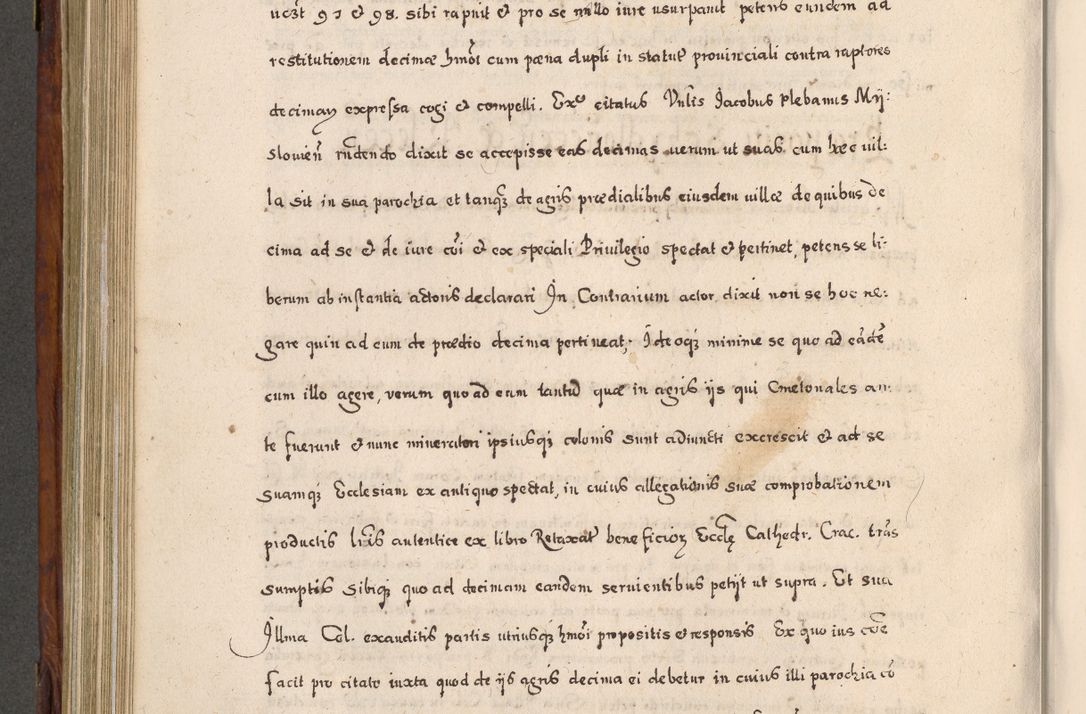 97 et 98. sibi rapuit et pro se nullo iure usurpauit petens eundem ad
restitutionem decimæ hmōi cum pœna dupli in statut prouinciali contra raptores
decimaꝝ expressa cogi et compelli. citatus Vnłis Jacobus Plebanus Mij:
slouien̄ rn̄dendo dixit se accepisse eas decimas uerum ut suas cum hæc uil:
la sit in sua parochia et tanqꝫ de agris prædialibus eiusdem uillæ de quibus de
cima ad se et de iure cōi et ex speciali Priuilegio spectat et pertinet, petens se li:
berum ab instantia actoris declarari In Contrarium actor dixit non se hoc ne:
gare quin ad eum de prædio decima pertineat; Ideoqꝫ minime se quo ad eādē
cum illo agere, verum quo ad eam tantū quæ in agris ijs qui Cmetonales an:
te fuerunt et nunc ipsiusqꝫ colonis sunt adiuncti excrescit et ad se
suamqꝫ Ecclesiam ex antiquo spectat, in cuius allegationis suæ comprobationem
productis lr̄is autentice ex libro Retaxat beneficioꝝ Eccłę Cathedr. Crac.
sumptis sibiqꝫ quo ad decimam eandem seruientibus petijt ut supra. Et sua
Illma Cel. exauditis partis utriusqꝫ hmōi propositis et responsis Ex quo ius cōe
facit pro citato iuxta quod de ijs agris decima ei debetur in cuius illi parochia cō